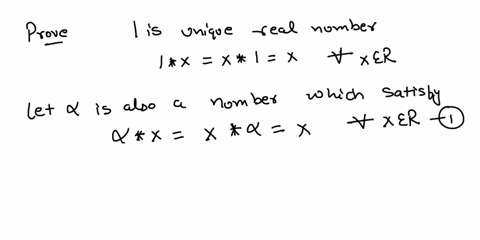 Prove 1 is unique real number
1 * x = x * 1 = x ∀ x ε R
Let α is also a number which satisfy
α * x = x * α = x ∀ x ε R —①